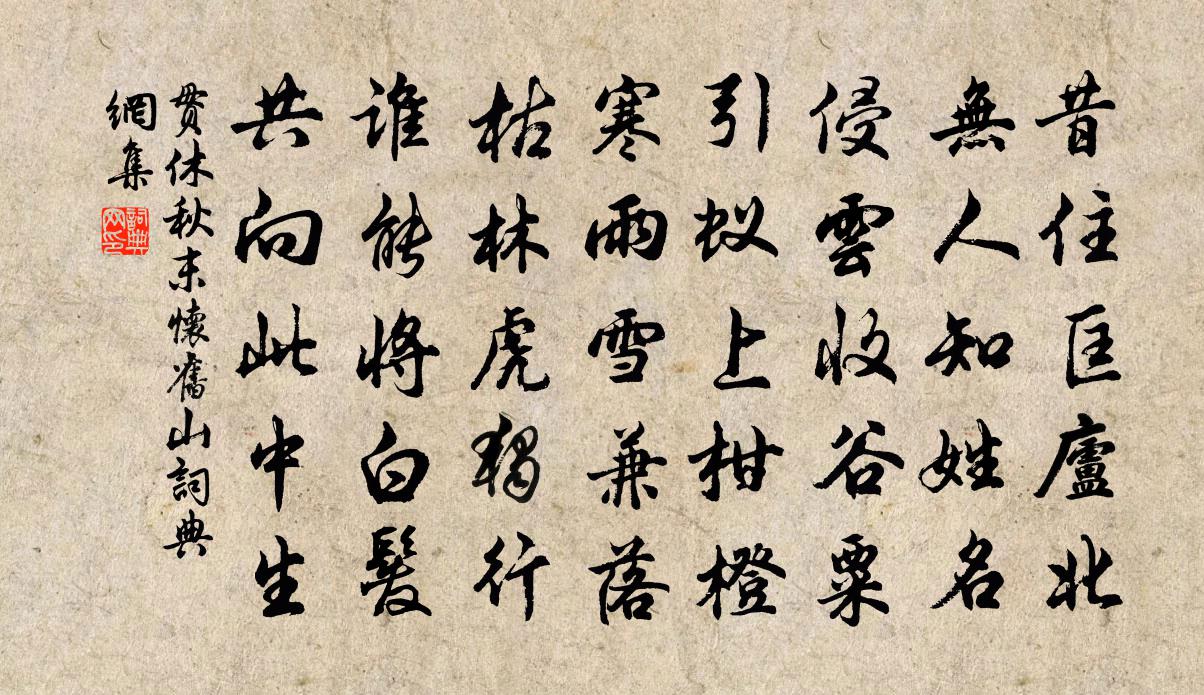 昔住匡廬北
無人知姓名
侵雲收谷粟
引蚁上柑橙
寒雨雪兼落
枯林虎獨行
谁能將白髮
共向此中生
貫休秋末懷舊山詞典
網集
詞典
网印